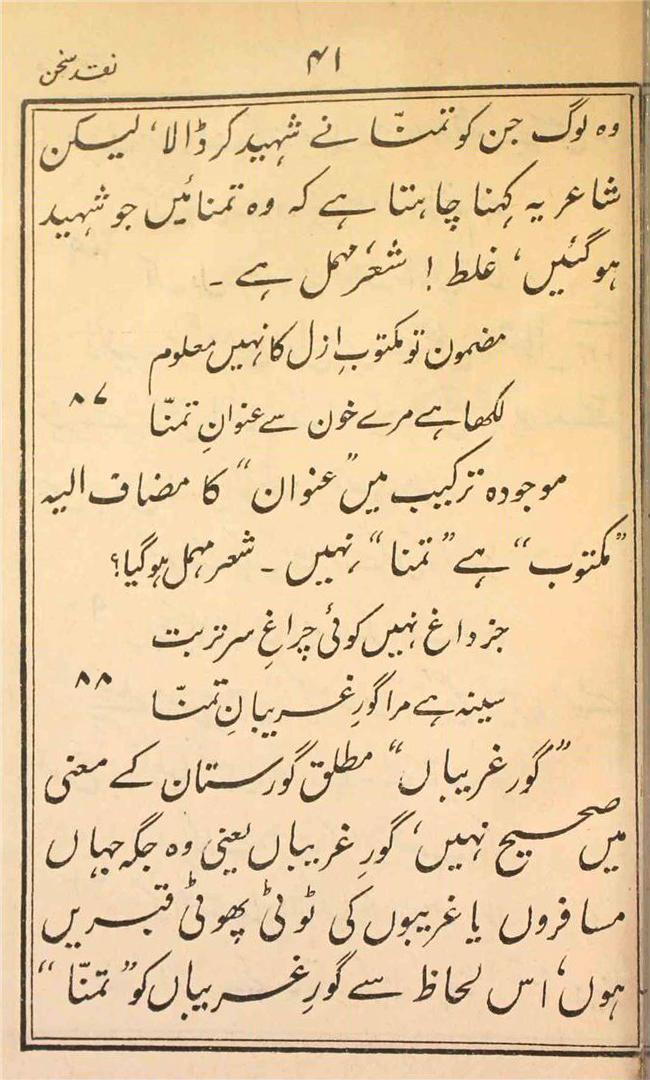 نقد سخن
۴۱
وہ لوگ جن کو تمنّا نے شہید کر ڈالا، لیکن
شاعر یہ کہنا چاہتا ہے کہ وہ تمنائیں جو شہید
ہوگئیں، غلط! شعر مہمل ہے ۔
مضمون تو مکتوبِ ازل کا نہیں معلوم
لکھا ہے مرے خون سے عنوانِ تمنّا ۸۷
موجودہ ترکیب میں "عنوان" کا مضاف الیہ
"مکتوب" ہے "تمنا" نہیں ۔ شعر مہمل ہوگیا؟
جز داغ نہیں کوئی چراغِ سرِ تربت
سینہ ہے مرا گورِ غریبانِ تمنّا ۸۸
"گور غریباں" مطلق گورستان کے معنی
میں صحیح نہیں، گورِ غریباں یعنی وہ جگہ جہاں
مسافروں یا غریبوں کی ٹوٹی پھوٹی قبریں
ہوں، اس لحاظ سے گورِ غریباں کو "تمنّا"